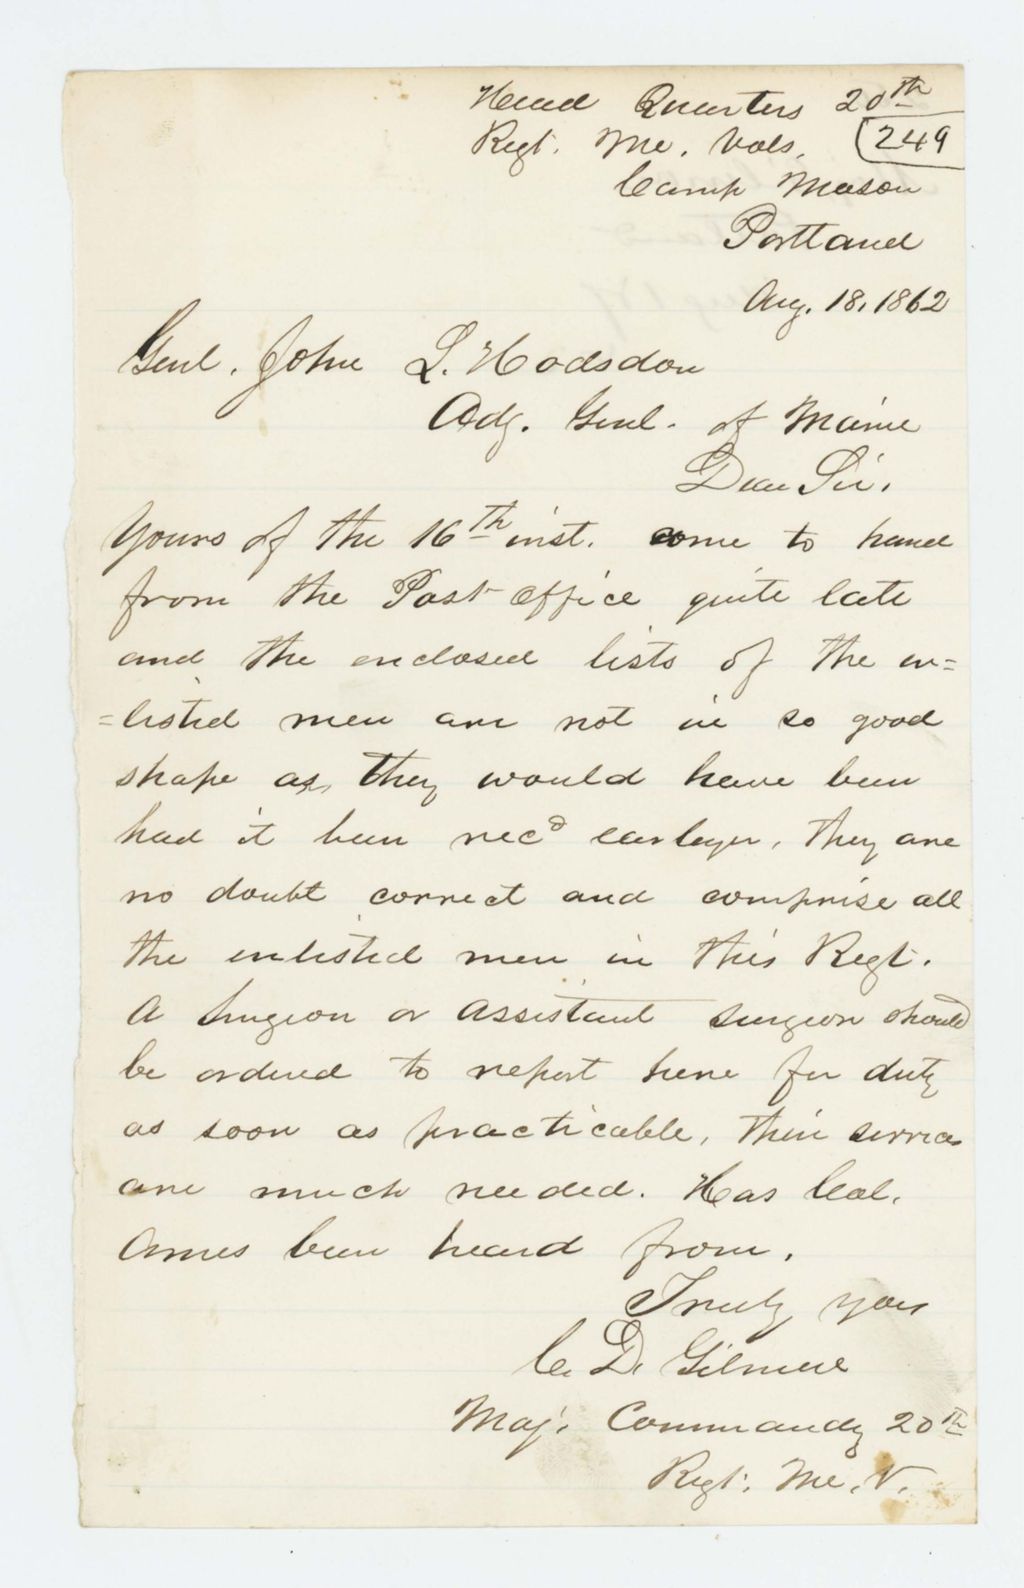 Head Quarters 20th
Regt. Me. Vols. 249
Camp Mason
Portland
Aug. 18. 1862
Genl. John L. Hodsdon
Adj. Genl. of Maine
Dear Sir.
Yours of the 16th inst. come to hand
from the Post office quite late
and the enclosed lists of the en=
=listed men are not in so good
shape as they would have been
had it been recd earleyer, they are
no doubt correct and comprise all
the enlisted men in this Regt.
A Surgeon or assistant surgeon should
be ordered to report here for duty
as soon as practicable, their services
are much needed. Has Col.
Ames been heard from.
Truly yours
C. D. Gilmore
Maj. Commandg 20th
Regt. Me. V.